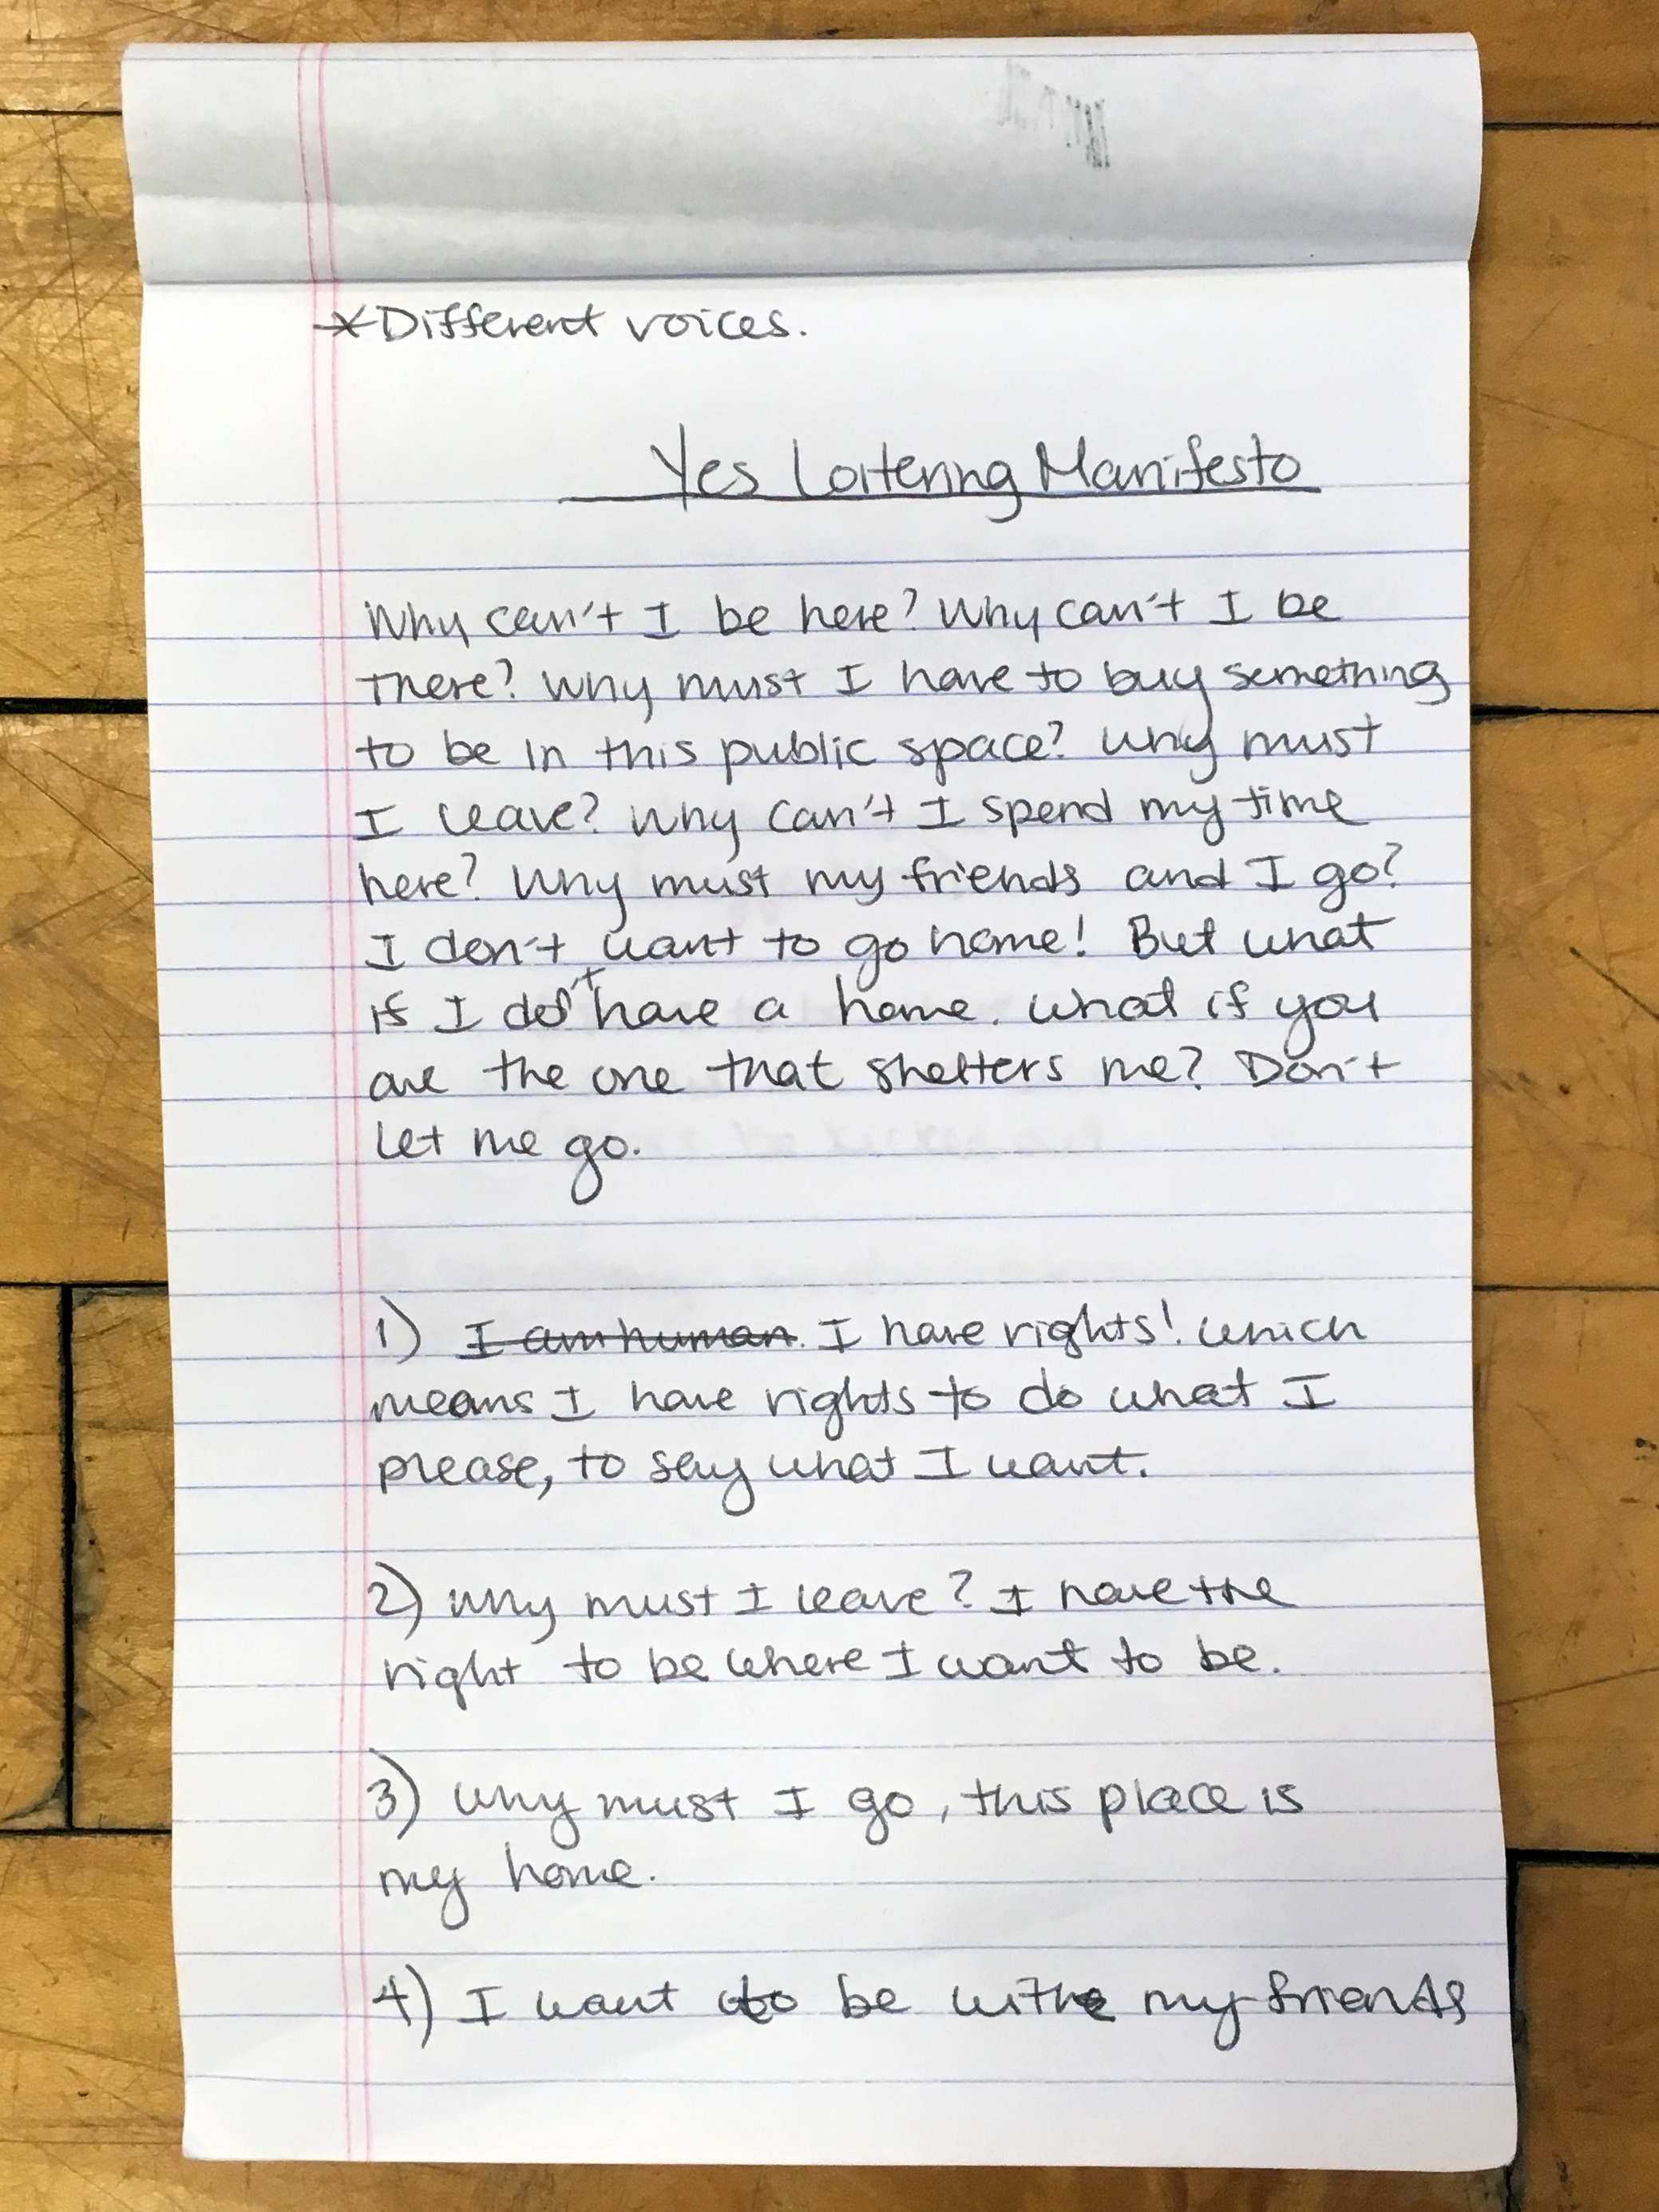 *Different voices.
Yes Loitering Manifesto
Why can't I be here? Why can't I be
there? Why must I have to buy something
to be in this public space? Why must
I leave? Why can't I spend my time
here? Why must my friends and I go?
I don't want to go home! But what
if I don't have a home. What if you
are the one that shelters me? Don't
let me go.
1) I am human. I have rights! which
means I have rights to do what I
please, to say what I want.
2) Why must I leave? I have the
right to be where I want to be.
3) Why must I go, this place is
my home.
4) I want to be with my friends